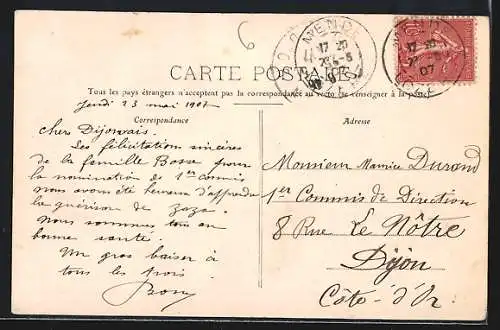 6
MENDE
17 20
23-5
07
17 20
07
CARTE POSTALE
Tous les pays étrangers n'acceptent pas la correspondance au recto (se renseigner à la poste).
Jeudi 23 mai 1907
Correspondance
Adresse
Chers Dijonais.
Les félicitations sincères
de la famille Bosse pour
la nomination de 1er Commis
nous avons été heureux d'apprendre
la guérison de Zaza.
Nous sommes tous en
bonne santé.
Un gros baiser à
tous les trois.
Monsieur Maurice Durand
1er Commis de Direction
8 Rue Le Nôtre
Dijon
Côte-d'Or